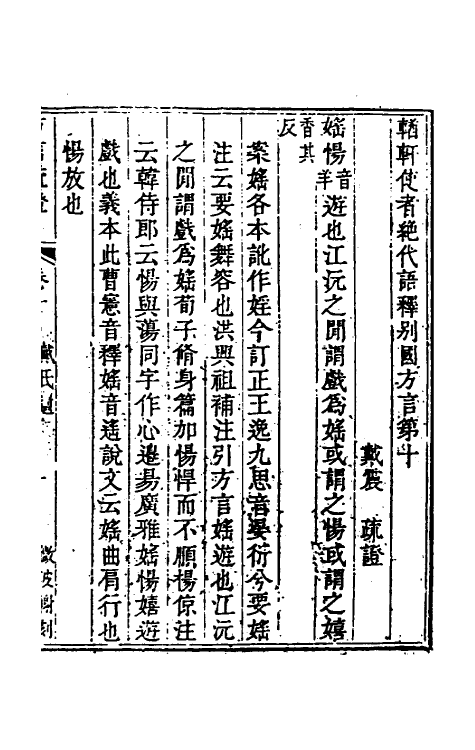 輶軒使者絶代語釋别國方言第十
戴震 疏證
媱惕音羊遊也江沅之閒謂戲為媱或謂之惕或謂之嬉
香其反
案媱各本訛作婬今訂正王逸九思音晏衍兮要媱
注云要媱舞容也洪興祖補注引方言媱遊也江沅
之閒謂戲為媱荀子脩身篇加惕悍而不順楊倞注
云韓侍郎云惕與蕩同字作心邊昜廣雅媱惕嬉遊
戲也義本此曹憲音釋媱音遙說文云媱曲肩行也
惕放也
卷十 戴氏遺
微波榭刻